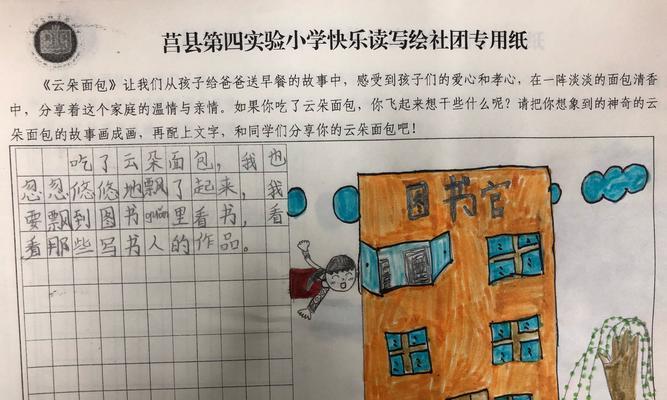 莒县第四实验小学快乐读写绘社团专用纸
《云朵面包》让我们从孩子给爸爸送早餐的故事中，感受到孩子们的爱心和孝心，在一阵淡淡的面包清香
中，分享着这个家庭的温情与亲情。如果你吃了云朵面包，你飞起来想干些什么呢？请把你想象到的神奇的云
朵面包的故事画成画，再配上文字，和同学们分享你的云朵面包吧！
吃了云朵面包，我也
忽忽悠悠地飘了起来，我
要飘到图书guǎn里看书，看
看那些写书人的作品。
图书官